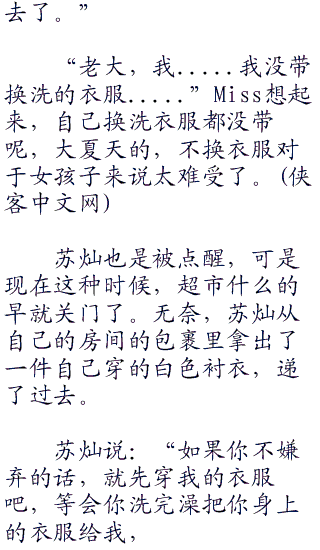 去了。”
“老大，我.....我没带
换洗的衣服.....”Miss想起
来，自己换洗衣服都没带
呢，大夏天的，不换衣服对
于女孩子来说太难受了。(侠
客中文网)
苏灿也是被点醒，可是
现在这种时候，超市什么的
早就关门了。无奈，苏灿从
自己的房间的包裹里拿出了
一件自己穿的白色衬衣，递
了过去。
苏灿说：“如果你不嫌
弃的话，就先穿我的衣服
吧，等会你洗完澡把你身上
的衣服给我，